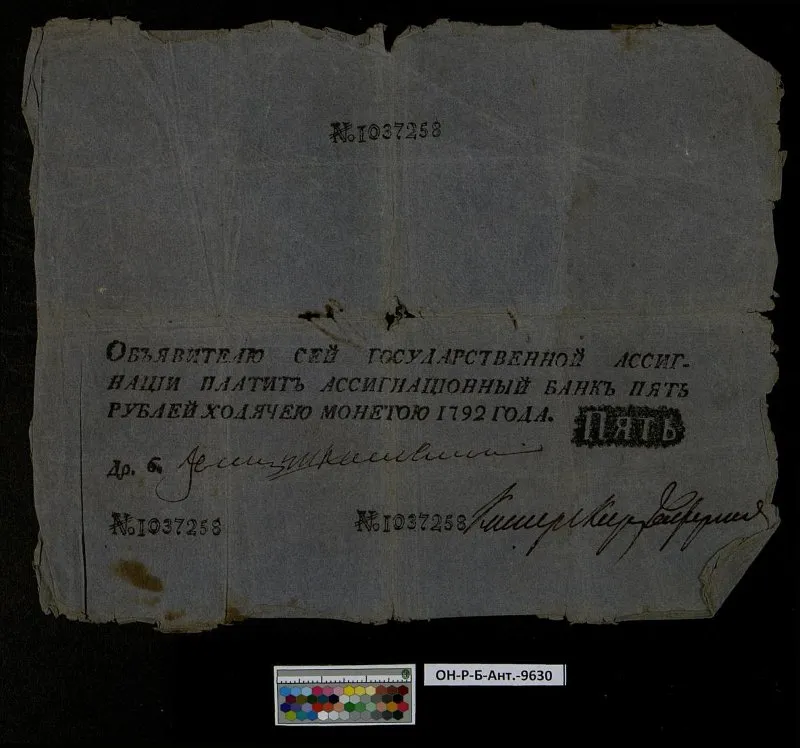 № 1037258
Объявителю сей государственной ассиг-
нацїи платитъ ассигнацїонный банкъ пять
рублей ходячею монетою 1792 года.
ПЯТЬ
Др. б.
№ 1037258
№ 1037258
ОН-Р-Б-Ант.-9630